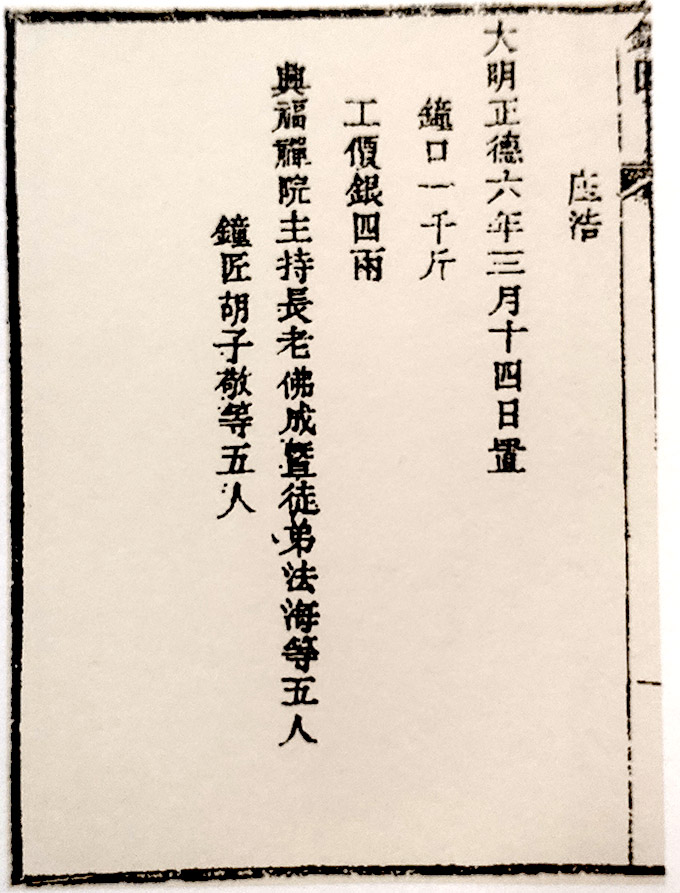 座浩
大明正德六年三月十四日置
鐘口一千斤
工價銀四兩
興福禪院主持長老佛成暨徒弟法海等五人
鐘匠胡子敬等五人